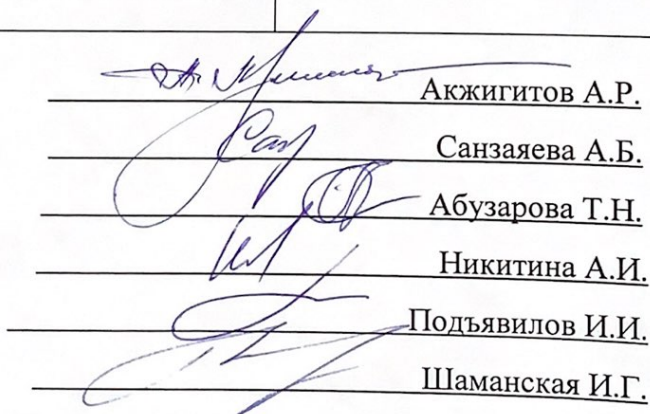 Акжигитов А.Р.
Санзаяева А.Б.
Абузарова Т.Н.
Никитина А.И.
Подъявилов И.И.
Шаманская И.Г.